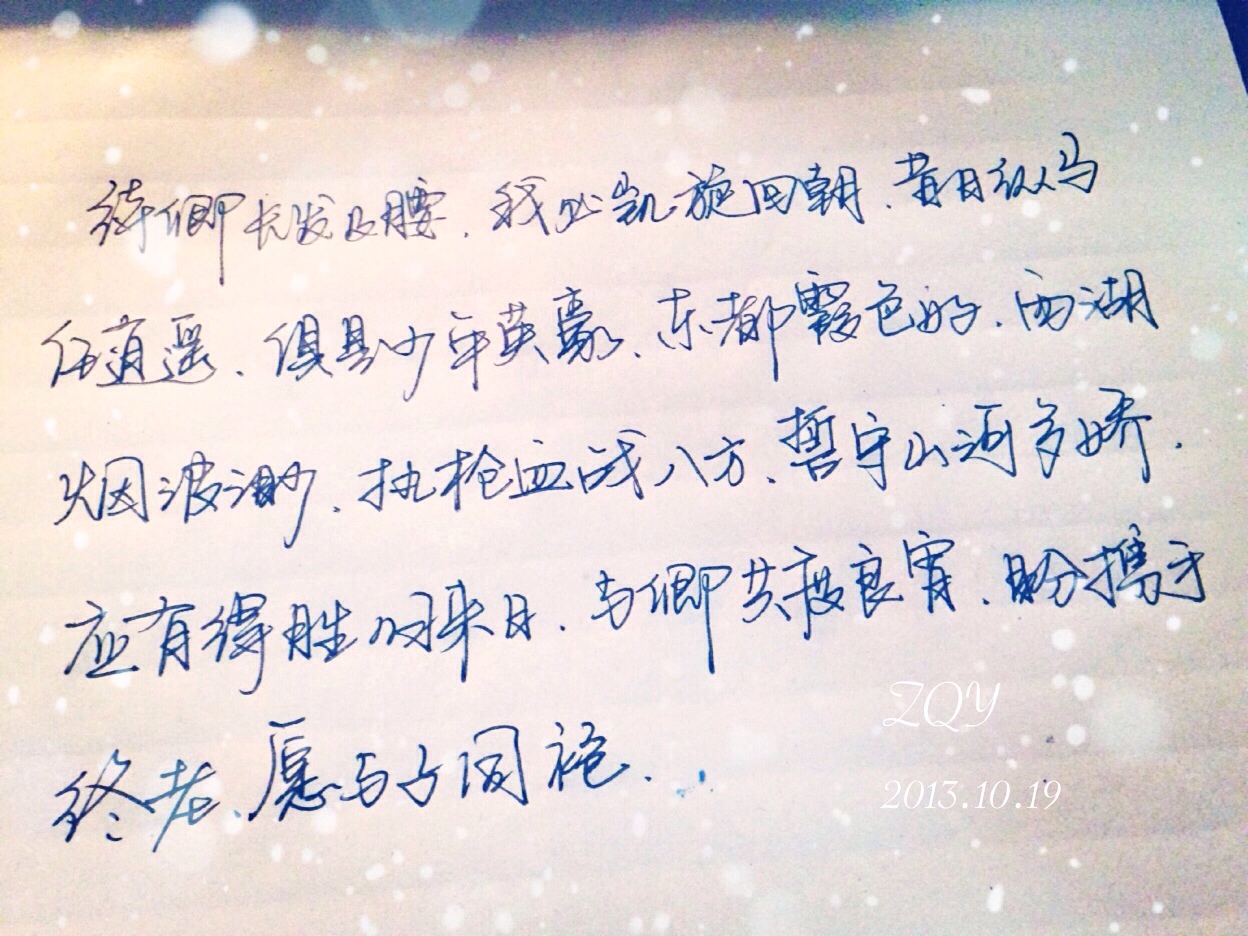 待卿长发及腰，我必凯旋回朝。昔日纵马
任逍遥，俱是少年英豪。东都霞色好，西湖
烟波渺。执枪血战八方，誓守山河多娇。
应有得胜归来日，与卿共度良宵。盼携手
终老，愿与子同袍...
ZQY
2013.10.19